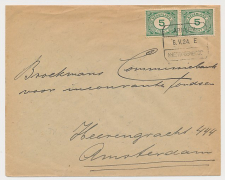 5 5
5.V.24. E
Broekmans Commissiebank
voor incourante fondsen
Heerengracht 444
Amsterdam